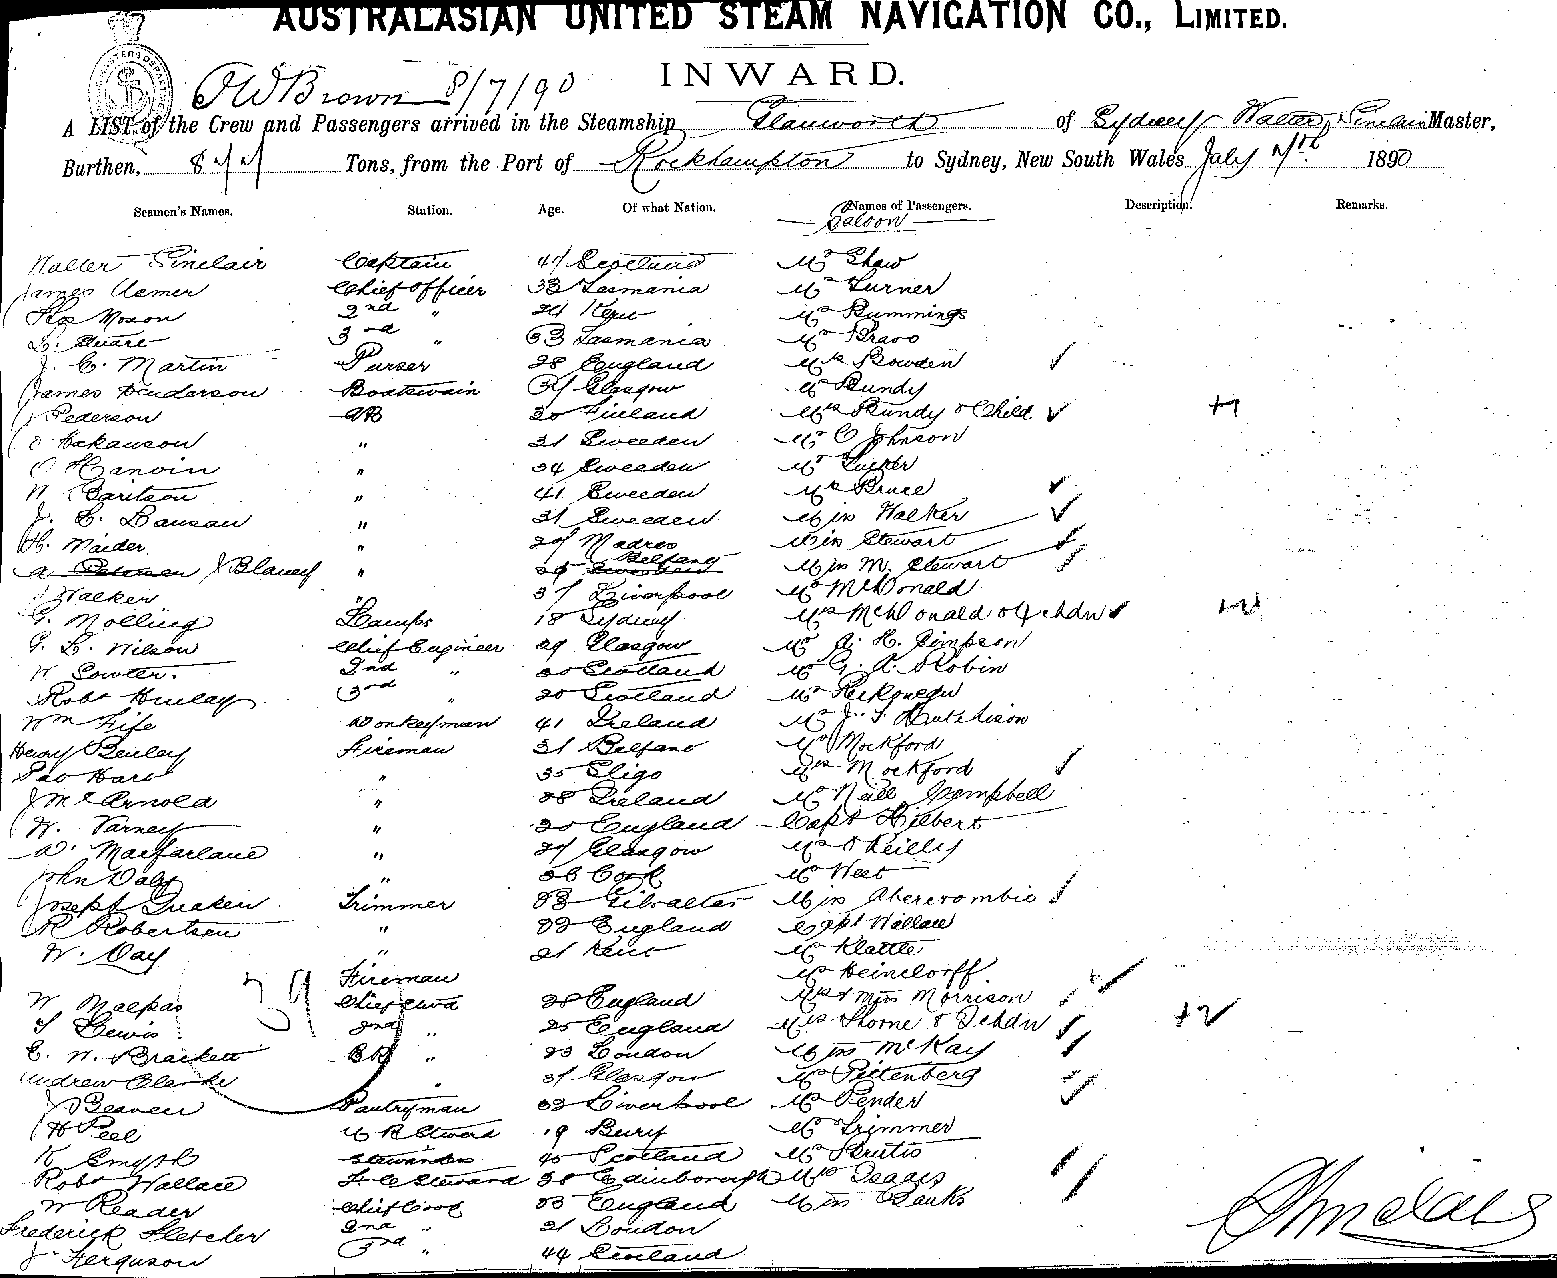 AUSTRALASIAN UNITED STEAM NAVIGATION CO., LIMITED.
INWARD.
JW Brown 8/7/90
A LIST of the Crew and Passengers arrived in the Steamship Glanworth of Sydney Walter Sinclair Master,
Burthen, 877 Tons, from the Port of Rockhampton to Sydney, New South Wales July 7th 1890
Seamen's Names. Station. Age. Of what Nation. Names of Passengers. Description. Remarks.
Saloon
Walter Sinclair Captain 47 Scotland Mr Shaw
James Chief Officer 33 Tasmania Mr Turner
Thos Moxon 2nd " 24 Kent Mr Cummings
3rd " Tasmania Mr Bravo
J. C. Martin Purser 28 England Mrs Bowden
James Henderson Boatswain Glasgow Mr Bundy
J Pederson AB 30 Finland Mrs Bundy & Child +1
O Hakanson " 31 Sweeden Mr C Johnson
" 34 Sweeden Mr Tucker
" 41 Sweeden Mrs Bruce
" 31 Sweeden Miss Walker
H. Maider " 27 Madras Miss Stewart
J Blaney " 29 Belfast Miss M. Stewart
J Walker " 37 Liverpool Mr McDonald
G. Nolling Lamps 18 Sydney Mrs McDonald & 4 chdn
G. L. Wilson Chief Engineer 29 Glasgow Mr A. H. Simpson
W Sowter. 2nd " 30 Scotland Mr G. A.
Robt 3rd 30 Scotland Mr
Wm Fife Donkeyman 41 Ireland Mr J. F. Hutchison
Henry Fireman 31 Belfast Mr Mockford
Pat " 35 Sligo Mrs Mockford
J McArnold " 38 Ireland Mr Neill Campbell
W. Varney " 30 England Capt Hilbert
W. Macfarlane " 27 Glasgow Mr O'Reilly
John Daly " 36 Cork Mr West
Joseph Trimmer 33 Gibraltar Miss Abercrombie
R Robertson " 32 England Capt Wallace
W. Day " 21 Kent Mr Klatte
39 Fireman Mr Heindorff
W Malpas Chief Stwd 28 England Mrs & Miss Morrison
T Lewis 2nd " 25 England Mrs Thorne & 2 chdn +2
E. W. Brackett BR " 23 London Miss McKay
Andrew Clarke " 31 Glasgow Mr Pittenberg
J Beaven Pantryman 33 Liverpool Mr Pender
H Peel M R Steward 19 Bury Mr Trimmer
K Smyth Stewardess 40 Scotland Mr
Robt Wallace F C Steward 38 Edinborough Mrs Isaacs
W Reader Chief Cook 33 England Miss Banks
Frederick Fletcher 2nd " 21 London
J Ferguson 3rd " 44 Scotland